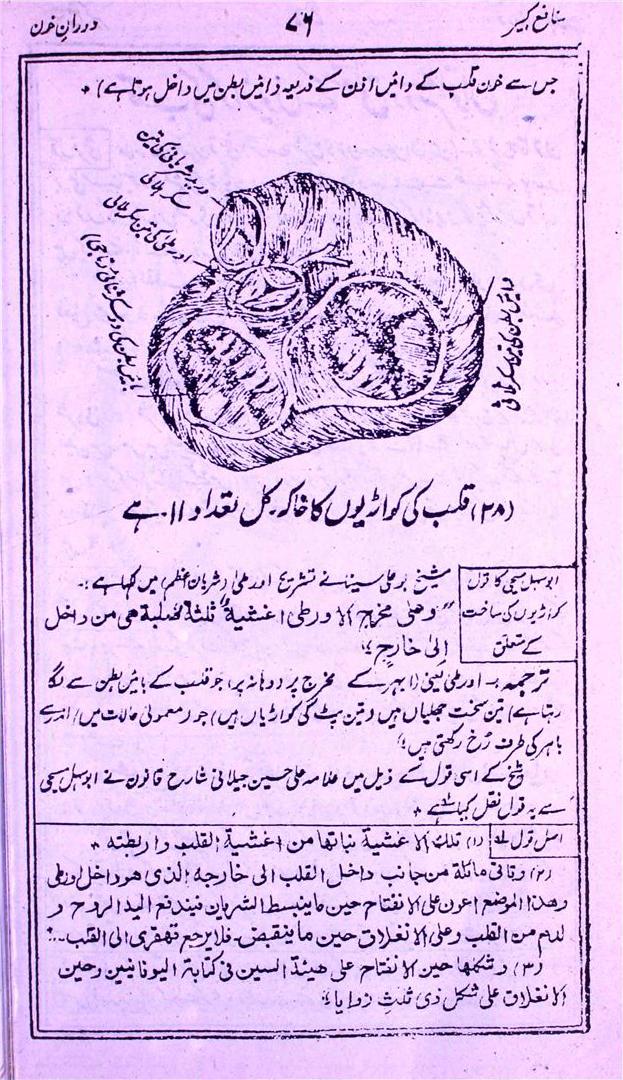 منافع کبیر
۷۶
دورانِ خون
جس سے خون قلب کے دائیں اذن کے ذریعہ دائیں بطن میں داخل ہوتا ہے) ٭
ورید شریانی کی تین
سہ ہلالی
اورطی کی تین سہ ہلالی
بائیں بطن کی دو سر کشائی (تاجی)
دائیں بطن کی تین سہ
(۲۸) قلب کی کواڑیوں کا خاکہ۔ کل تعداد ۱۱ ہے
ابوسہل مسیحی کا قول
کواڑیوں کی ساخت
کے متعلق
شیخ بو علی سینا نے تشریح اورطی (شریان اعظم) میں کہا ہے :۔
"وعلی مخرج الاورطی اغشیة ثلثة صلبة هی من داخل
الیٰ خارج"
ترجمہ :۔ اورطی یعنی (ابہر کے مخرج پر (دہانہ پر) جو قلب کے بائیں بطن سے لگا
رہتا ہے) تین سخت جھلیاں ہیں (تین پٹ کی کواڑیاں ہیں) جو (معمولی حالات میں) اندر سے
باہر کی طرف رُخ رکھتی ہیں"
شیخ کے اسی قول کے ذیل میں علامہ علی حسین جیلانی شارح قانون نے ابوسہل مسیحی
سے یہ قول نقل کیا ہے ٭
اصل قول
(۱) تلك الاغشیة نباتها من اغشیة القلب واربطته ٭
(۲) وقال مائلة من جانب داخل القلب الی خارجه الذی هو داخل اورطی
وهذا الموضع اعون علی الانفتاح حین ما ینبسط الشریان فیندفع الیه الروح و
الدم من القلب وعلی الانغلاق حین ما ینقبض فلا یرجع قهقری الی القلب
(۳) وشکلها حین الانفتاح علی هیئة السین فی کتابة الیونانیین وحین
الانغلاق علی شکل ذی ثلث زوایا"